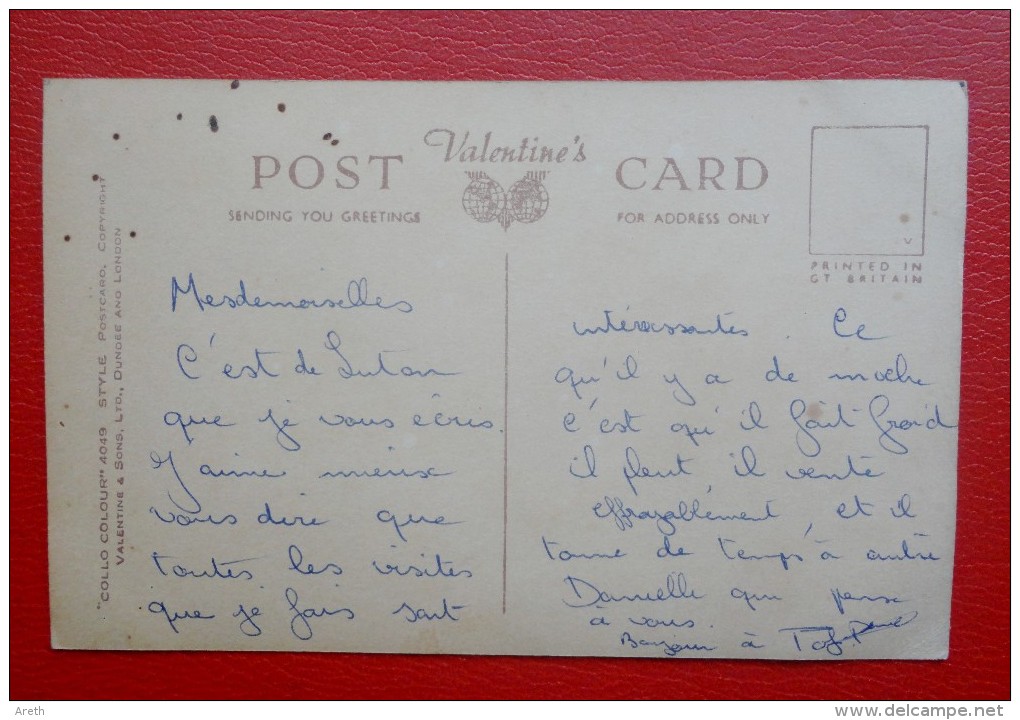 Valentine's
POST CARD
SENDING YOU GREETINGS
FOR ADDRESS ONLY
V
PRINTED IN
GT BRITAIN
"COLLO COLOUR" 4049 STYLE POSTCARD, COPYRIGHT
VALENTINE & SONS, LTD., DUNDEE AND LONDON
Mesdemoiselles
C'est de Luton
que je vous écris.
J'aime mieux
vous dire que
toutes les visites
que je fais sont
intéressantes. Ce
qu'il y a de moche
c'est qu'il fait froid
il pleut il vente
effroyablement, et il
tonne de temps à autre
Danielle qui pense
à vous.
Bonjour à
Areth
www.delcampe.net